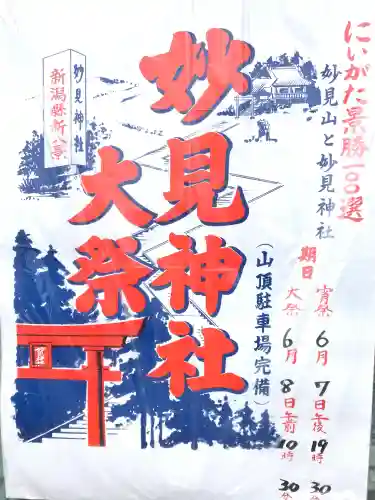 にいがた景勝一〇〇選
妙見山と妙見神社
妙見神社
大祭
妙見神社
新潟縣新八景
(山頂駐車場完備)
期日
宵祭 6月7日午後19時30分
大祭 6月8日午前10時30分